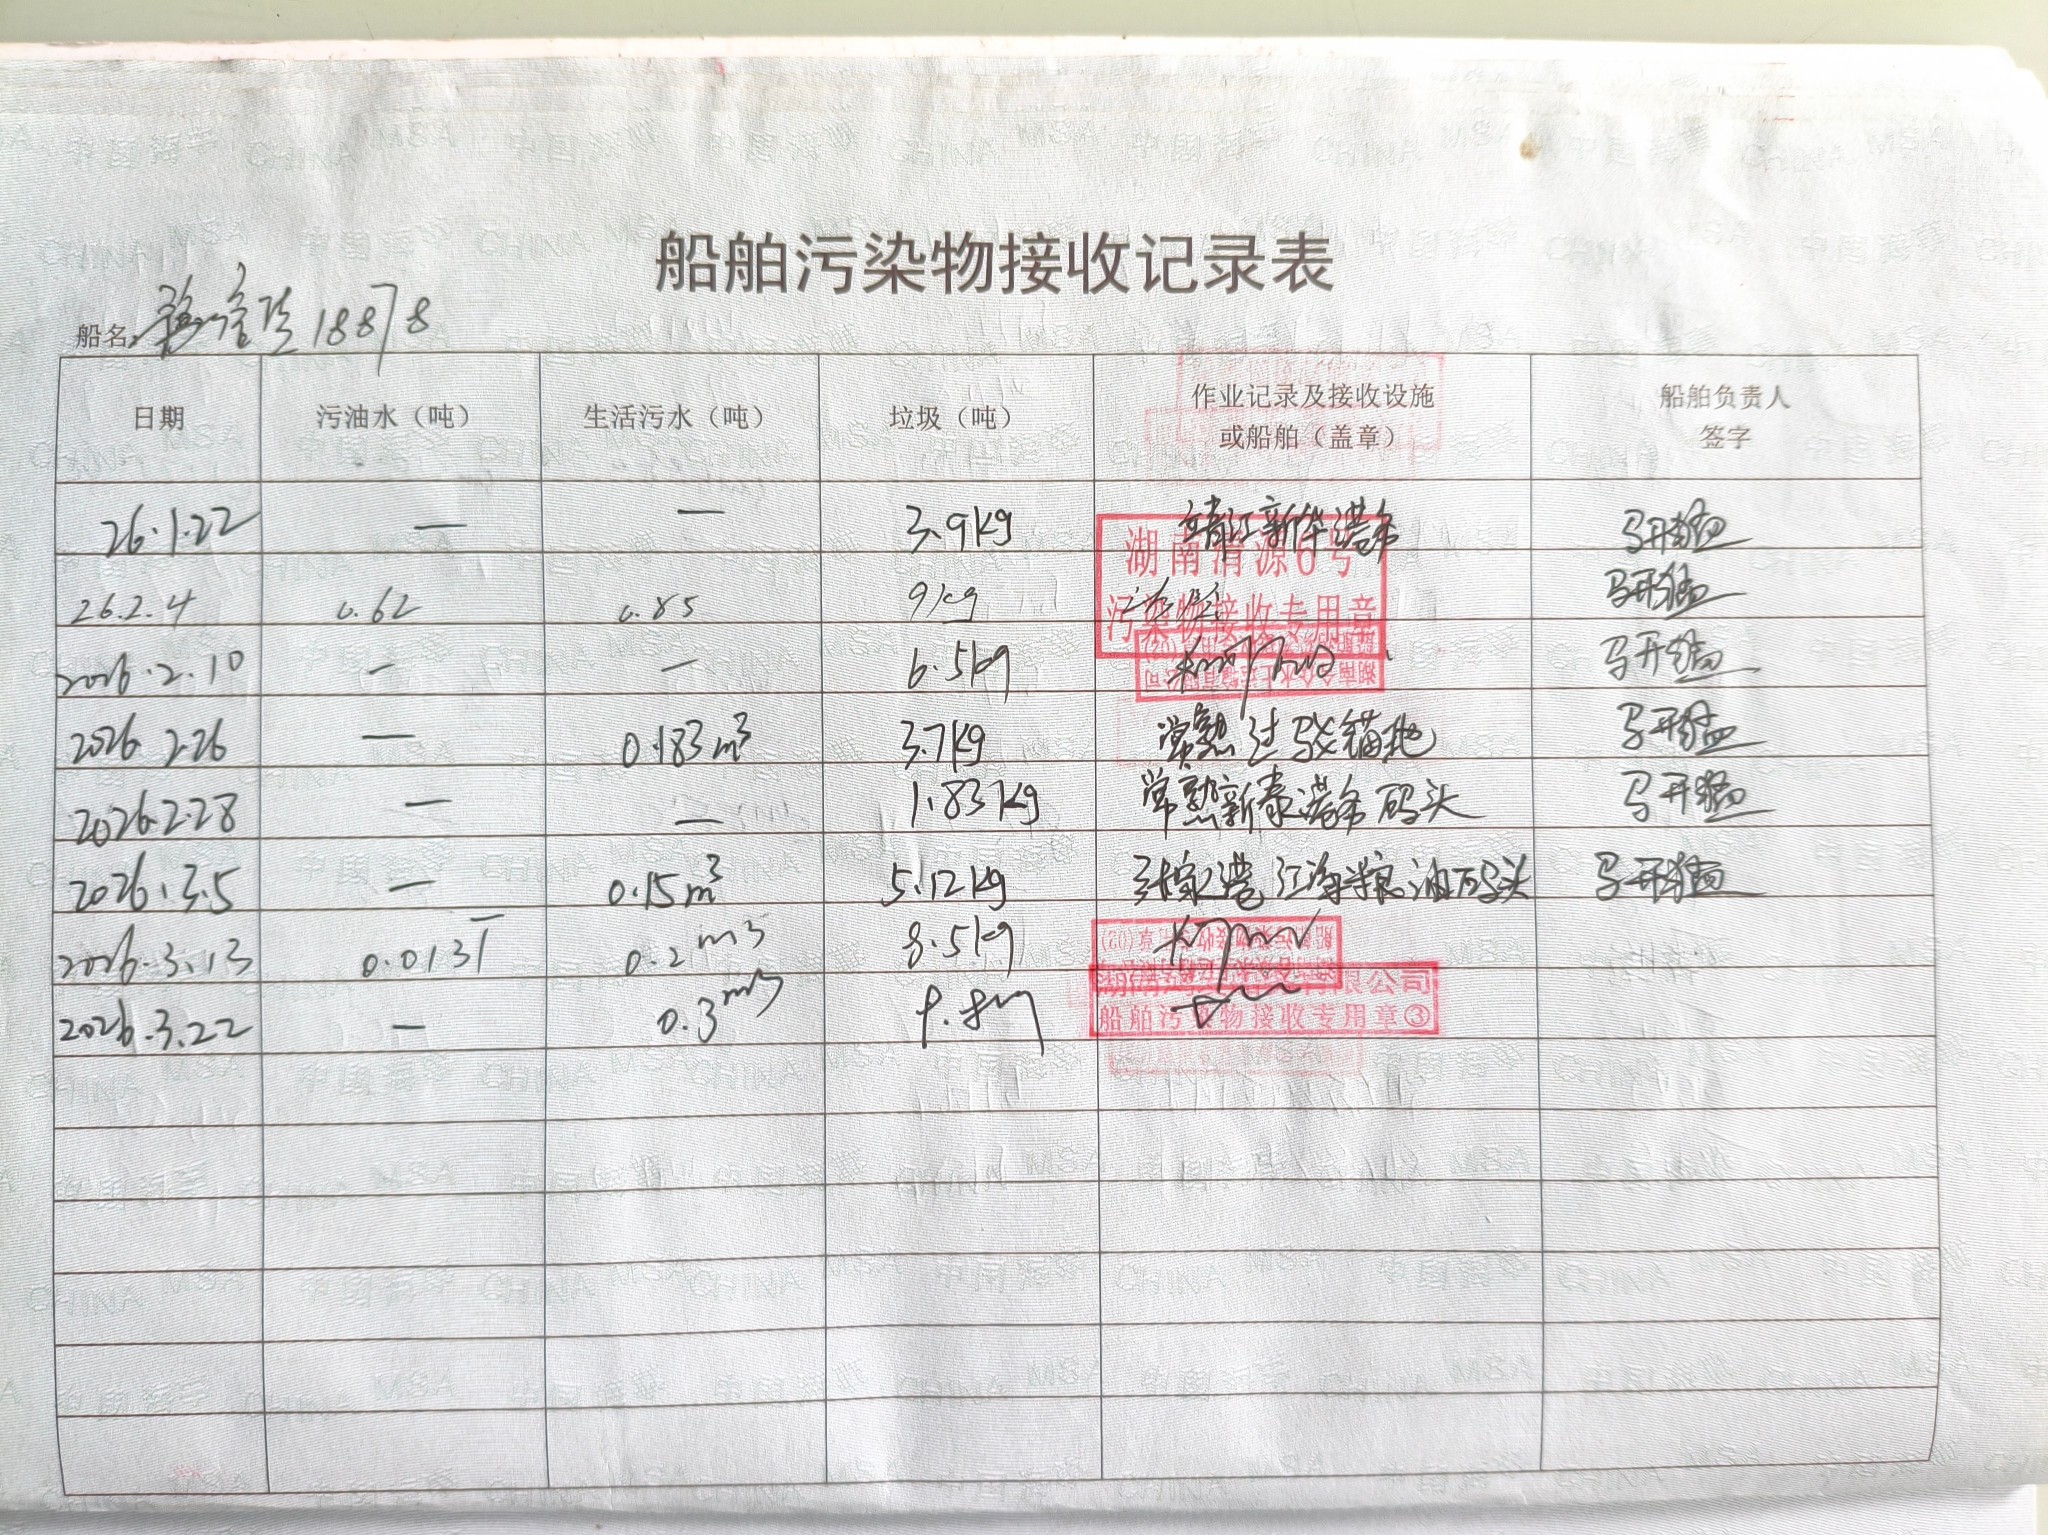 船舶污染物接收记录表
船名: 18878
日期 污油水（吨） 生活污水（吨） 垃圾（吨） 作业记录及接收设施或船舶（盖章） 船舶负责人签字
26.1.22 — — 3.9kg 靖江新华港务 马开猛
26.2.4 0.62 0.85 9kg 湖南清源6号 污染物接收专用章 马开猛
2026.2.10 — — 6.5kg 马开猛
2026 2.26 — 0.183m³ 3.7kg 常熟过驳锚地 马开猛
2026.2.28 — — 1.83kg 常熟新泰港务码头 马开猛
2026.3.5 — 0.15m³ 5.12kg 张家港江海粮油码头 马开猛
2026.3.13 0.013T 0.2m3 8.5kg
2026.3.22 — 0.3m3 9.8kg 有限公司 船舶污染物接收专用章③